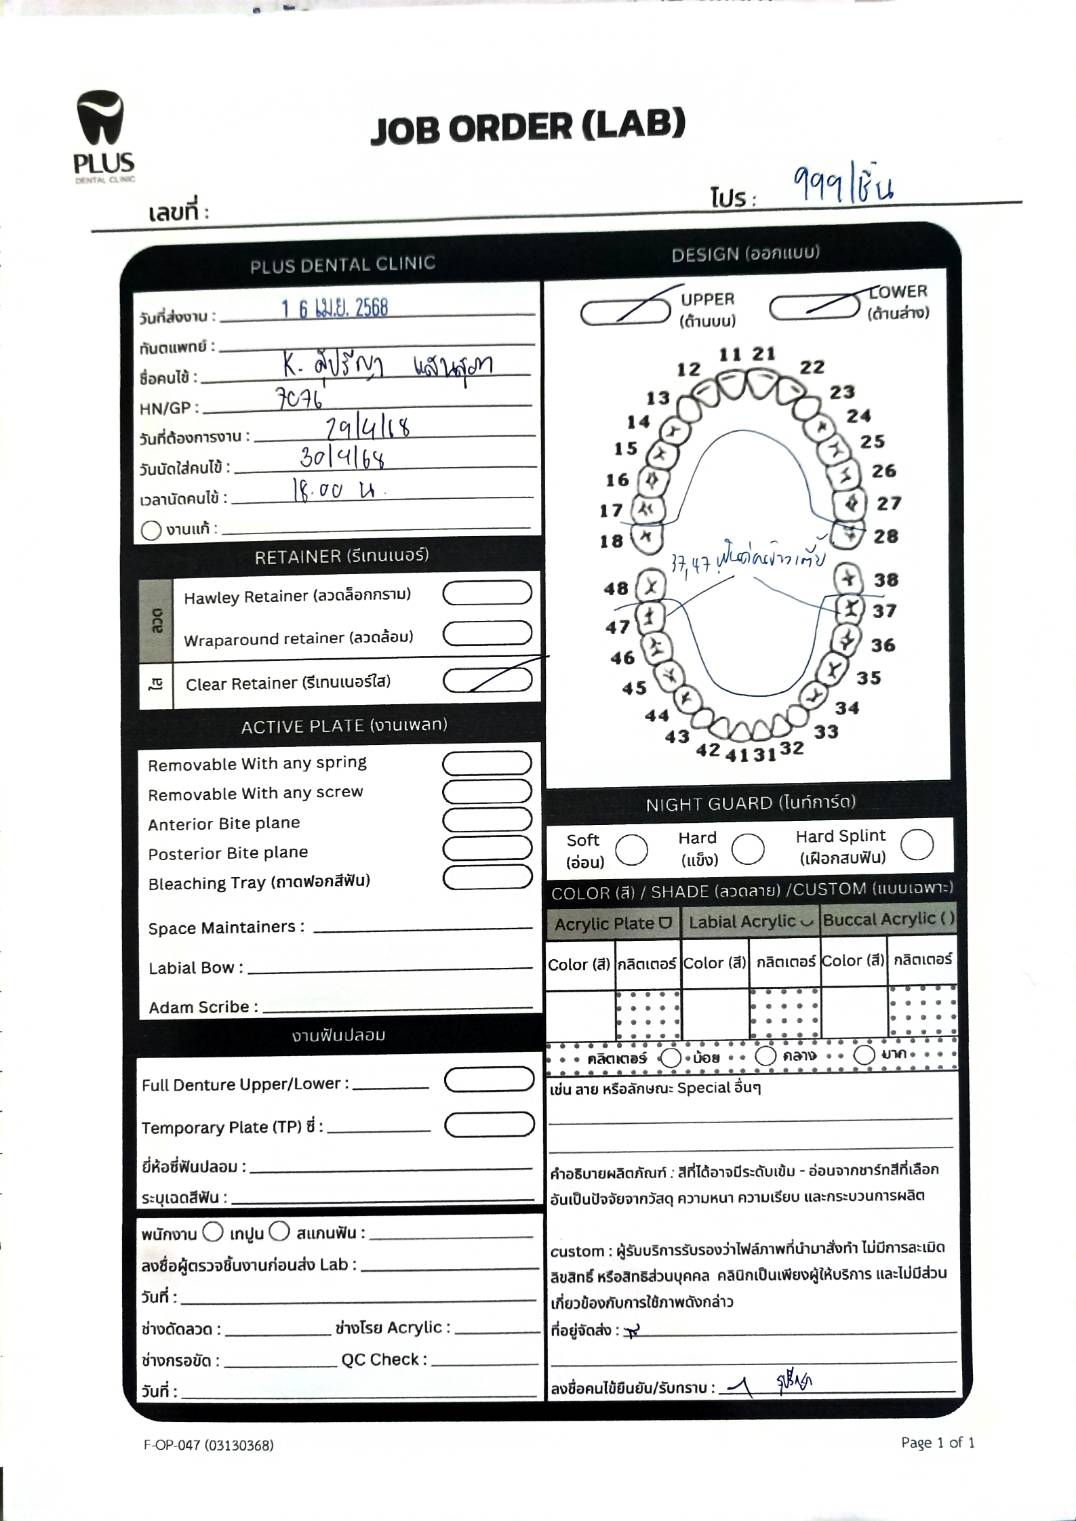 PLUS
DENTAL CLINIC
JOB ORDER (LAB)
เลขที่ :
โปร : 999/ชิ้น
PLUS DENTAL CLINIC
วันที่ส่งงาน : 1 6 เม.ย. 2568
ทันตแพทย์ :
ชื่อคนไข้ : K. สุปรีญา แสนสุภา
HN/GP : 7076
วันที่ต้องการงาน : 29/4/68
วันนัดใส่คนไข้ : 30/4/68
เวลานัดคนไข้ : 18.00 น.
งานแก้ :
RETAINER (รีเทนเนอร์)
ลวด
Hawley Retainer (ลวดล็อกกราม)
Wraparound retainer (ลวดล้อม)
ใส
Clear Retainer (รีเทนเนอร์ใส)
ACTIVE PLATE (งานเพลท)
Removable With any spring
Removable With any screw
Anterior Bite plane
Posterior Bite plane
Bleaching Tray (ถาดฟอกสีฟัน)
Space Maintainers :
Labial Bow :
Adam Scribe :
งานฟันปลอม
Full Denture Upper/Lower :
Temporary Plate (TP) ซี่ :
ยี่ห้อซี่ฟันปลอม :
ระบุเฉดสีฟัน :
พนักงาน เทปูน สแกนฟัน :
ลงชื่อผู้ตรวจชิ้นงานก่อนส่ง Lab :
วันที่ :
ช่างดัดลวด : ช่างโรย Acrylic :
ช่างกรอขัด : QC Check :
วันที่ :
DESIGN (ออกแบบ)
UPPER
(ด้านบน)
LOWER
(ด้านล่าง)
11 21
12 22
13 23
14 24
15 25
16 26
17 27
18 28
37,47
48 38
47 37
46 36
45 35
44 34
43 33
42 41 31 32
NIGHT GUARD (ไนท์การ์ด)
Soft
(อ่อน)
Hard
(แข็ง)
Hard Splint
(เฝือกสบฟัน)
COLOR (สี) / SHADE (ลวดลาย) /CUSTOM (แบบเฉพาะ)
Acrylic Plate Labial Acrylic Buccal Acrylic ( )
Color (สี) กลิตเตอร์ Color (สี) กลิตเตอร์ Color (สี) กลิตเตอร์
กลิตเตอร์ น้อย กลาง มาก
เช่น ลาย หรือลักษณะ Special อื่นๆ
คำอธิบายผลิตภัณฑ์ : สีที่ได้อาจมีระดับเข้ม - อ่อนจากชาร์ทสีที่เลือก
อันเป็นปัจจัยจากวัสดุ ความหนา ความเรียบ และกระบวนการผลิต
custom : ผู้รับบริการรับรองว่าไฟล์ภาพที่นำมาสั่งทำ ไม่มีการละเมิด
ลิขสิทธิ์ หรือสิทธิส่วนบุคคล คลินิกเป็นเพียงผู้ให้บริการ และไม่มีส่วน
เกี่ยวข้องกับการใช้ภาพดังกล่าว
ที่อยู่จัดส่ง :
ลงชื่อคนไข้ยืนยัน/รับทราบ :
F-OP-047 (03130368)
Page 1 of 1